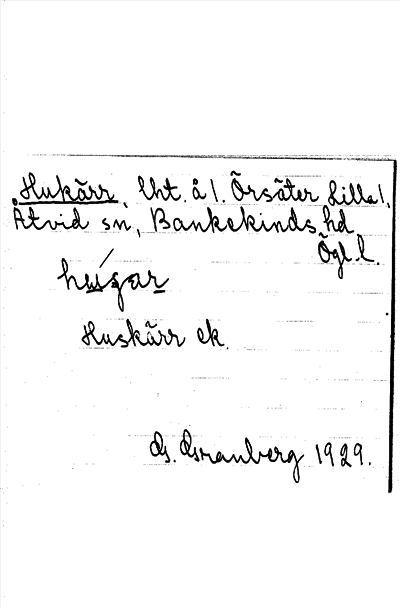 Hukärr, lht. å l. Örsäter Lilla l.
Åtvid sn, Bankekinds hd
Ögl. l.
Huskärr ek.
G. Granberg 1929.